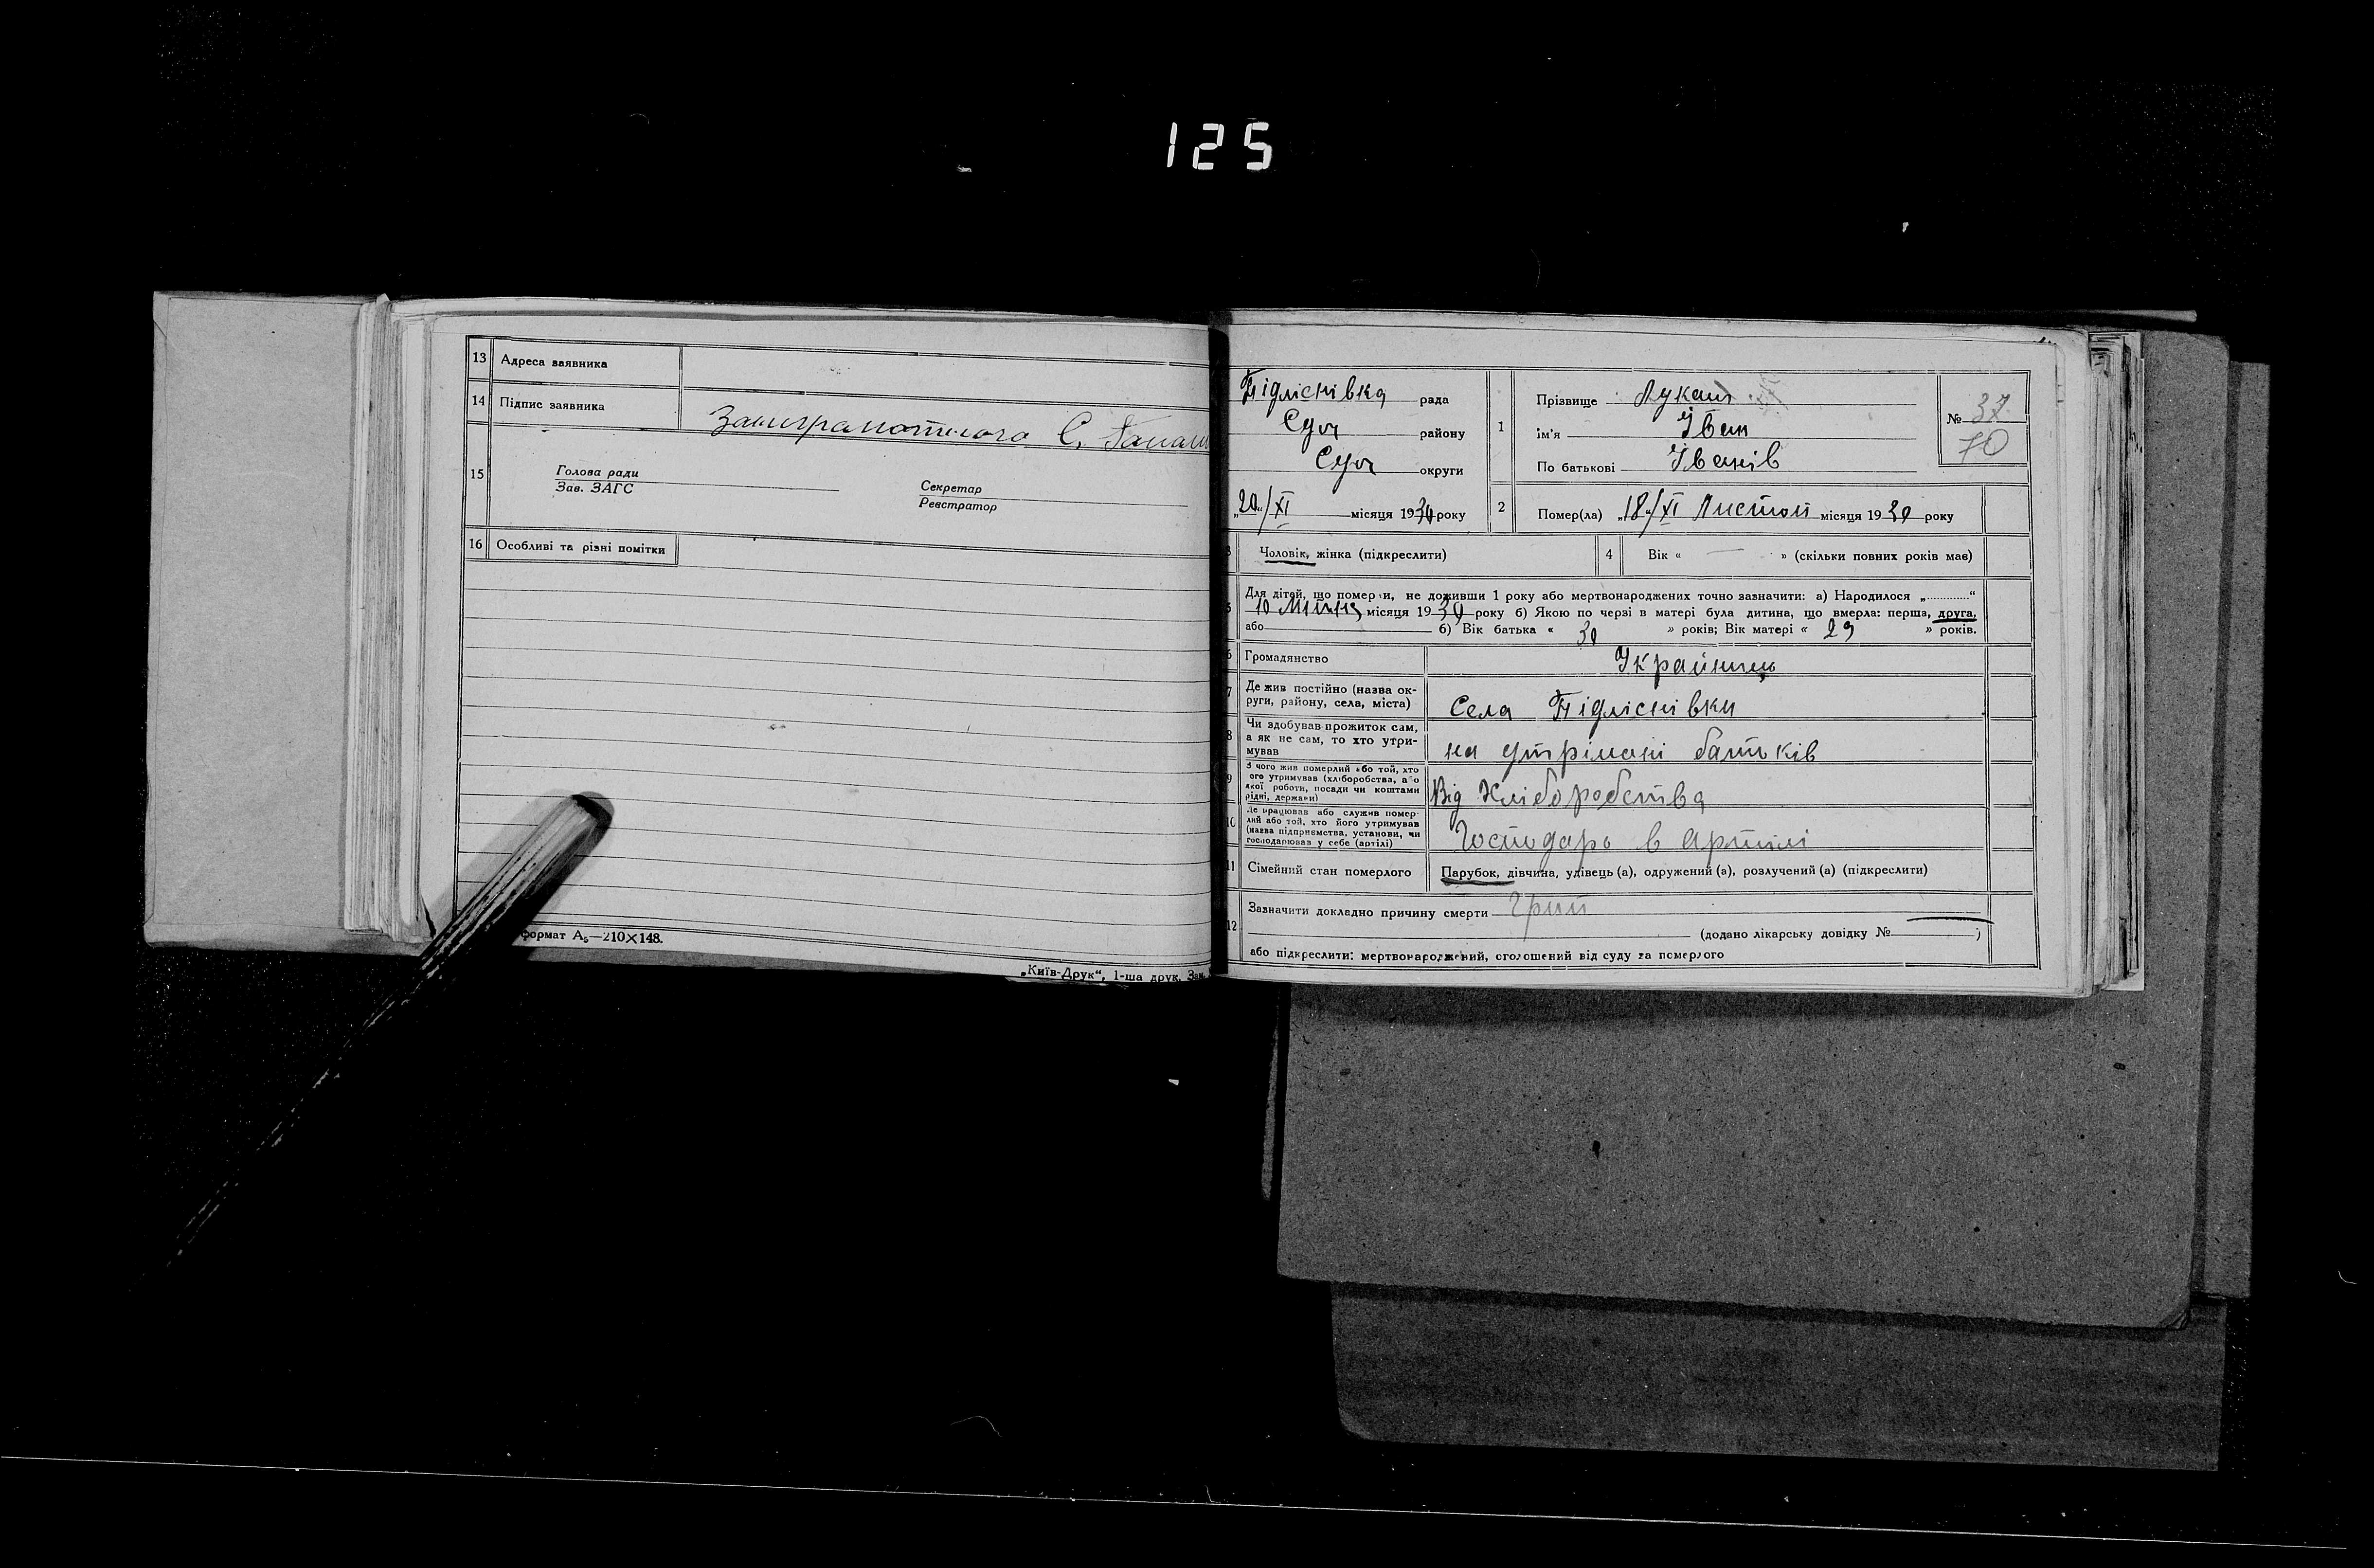 125
13 Адреса заявника
14 Підпис заявника
Занеграмотного С.
15 Голова ради
Зав. ЗАГС
Секретар
Реєстратор
16 Особливі та різні помітки
формат А₅—210×148.
„Київ-Друк“, 1-ша друк. Зам.
Підліснівка рада
району
округи
„20“/XI місяця 1930 року
1 Прізвище Лукаш
ім'я Іван
По батькові Іванів
№ 37
70
2 Помер(ла) „18“/XI Листоп місяця 1930 року
Чоловік, жінка (підкреслити)
4 Вік « — » (скільки повних років має)
Для дітей, що померли, не доживши 1 року або мертвонароджених точно зазначити: а) Народилося „............“
10 місяця 1930 року б) Якою по черзі в матері була дитина, що вмерла: перша, друга,
або б) Вік батька « 30 » років; Вік матері « 29 » років.
6 Громадянство Українець
7 Де жив постійно (назва ок-
руги, району, села, міста) Села Підліснівки
8 Чи здобував прожиток сам,
а як не сам, то хто утри-
мував на утрімані батьків
9 З чого жив померлий або той, хто
його утримував (хліборобства, або
якої роботи, посади чи коштами
рідні, держави) Від Хліборобства
10 Де працював або служив помер-
лий або той, хто його утримував
(назва підприємства, установи, чи
господарював у себе (артілі) Господарь в Артілі
11 Сімейний стан померлого Парубок, дівчина, удівець (а), одружений (а), розлучений (а) (підкреслити)
12 Зазначити докладно причину смерти Грип
(додано лікарську довідку № — )
або підкреслити: мертвонароджений, оголошений від суду за померлого